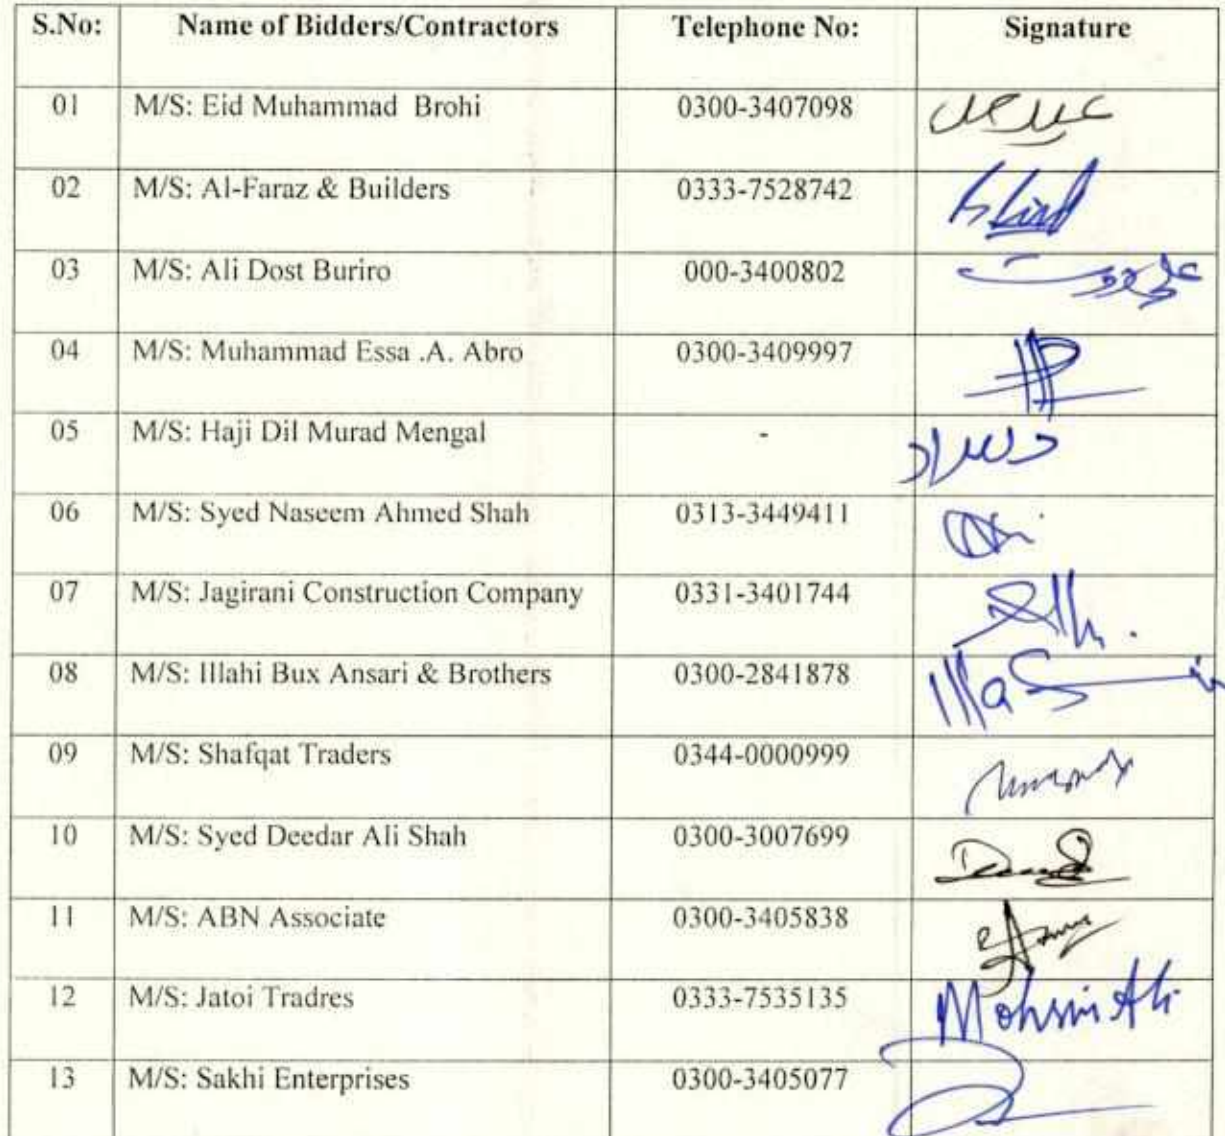 S.No: Name of Bidders/Contractors Telephone No: Signature
01 M/S: Eid Muhammad Brohi 0300-3407098
02 M/S: Al-Faraz & Builders 0333-7528742
03 M/S: Ali Dost Buriro 000-3400802 علي دوست
04 M/S: Muhammad Essa .A. Abro 0300-3409997
05 M/S: Haji Dil Murad Mengal - دلمراد
06 M/S: Syed Naseem Ahmed Shah 0313-3449411
07 M/S: Jagirani Construction Company 0331-3401744
08 M/S: Illahi Bux Ansari & Brothers 0300-2841878
09 M/S: Shafqat Traders 0344-0000999
10 M/S: Syed Deedar Ali Shah 0300-3007699
11 M/S: ABN Associate 0300-3405838
12 M/S: Jatoi Tradres 0333-7535135 Mohsin Ali
13 M/S: Sakhi Enterprises 0300-3405077